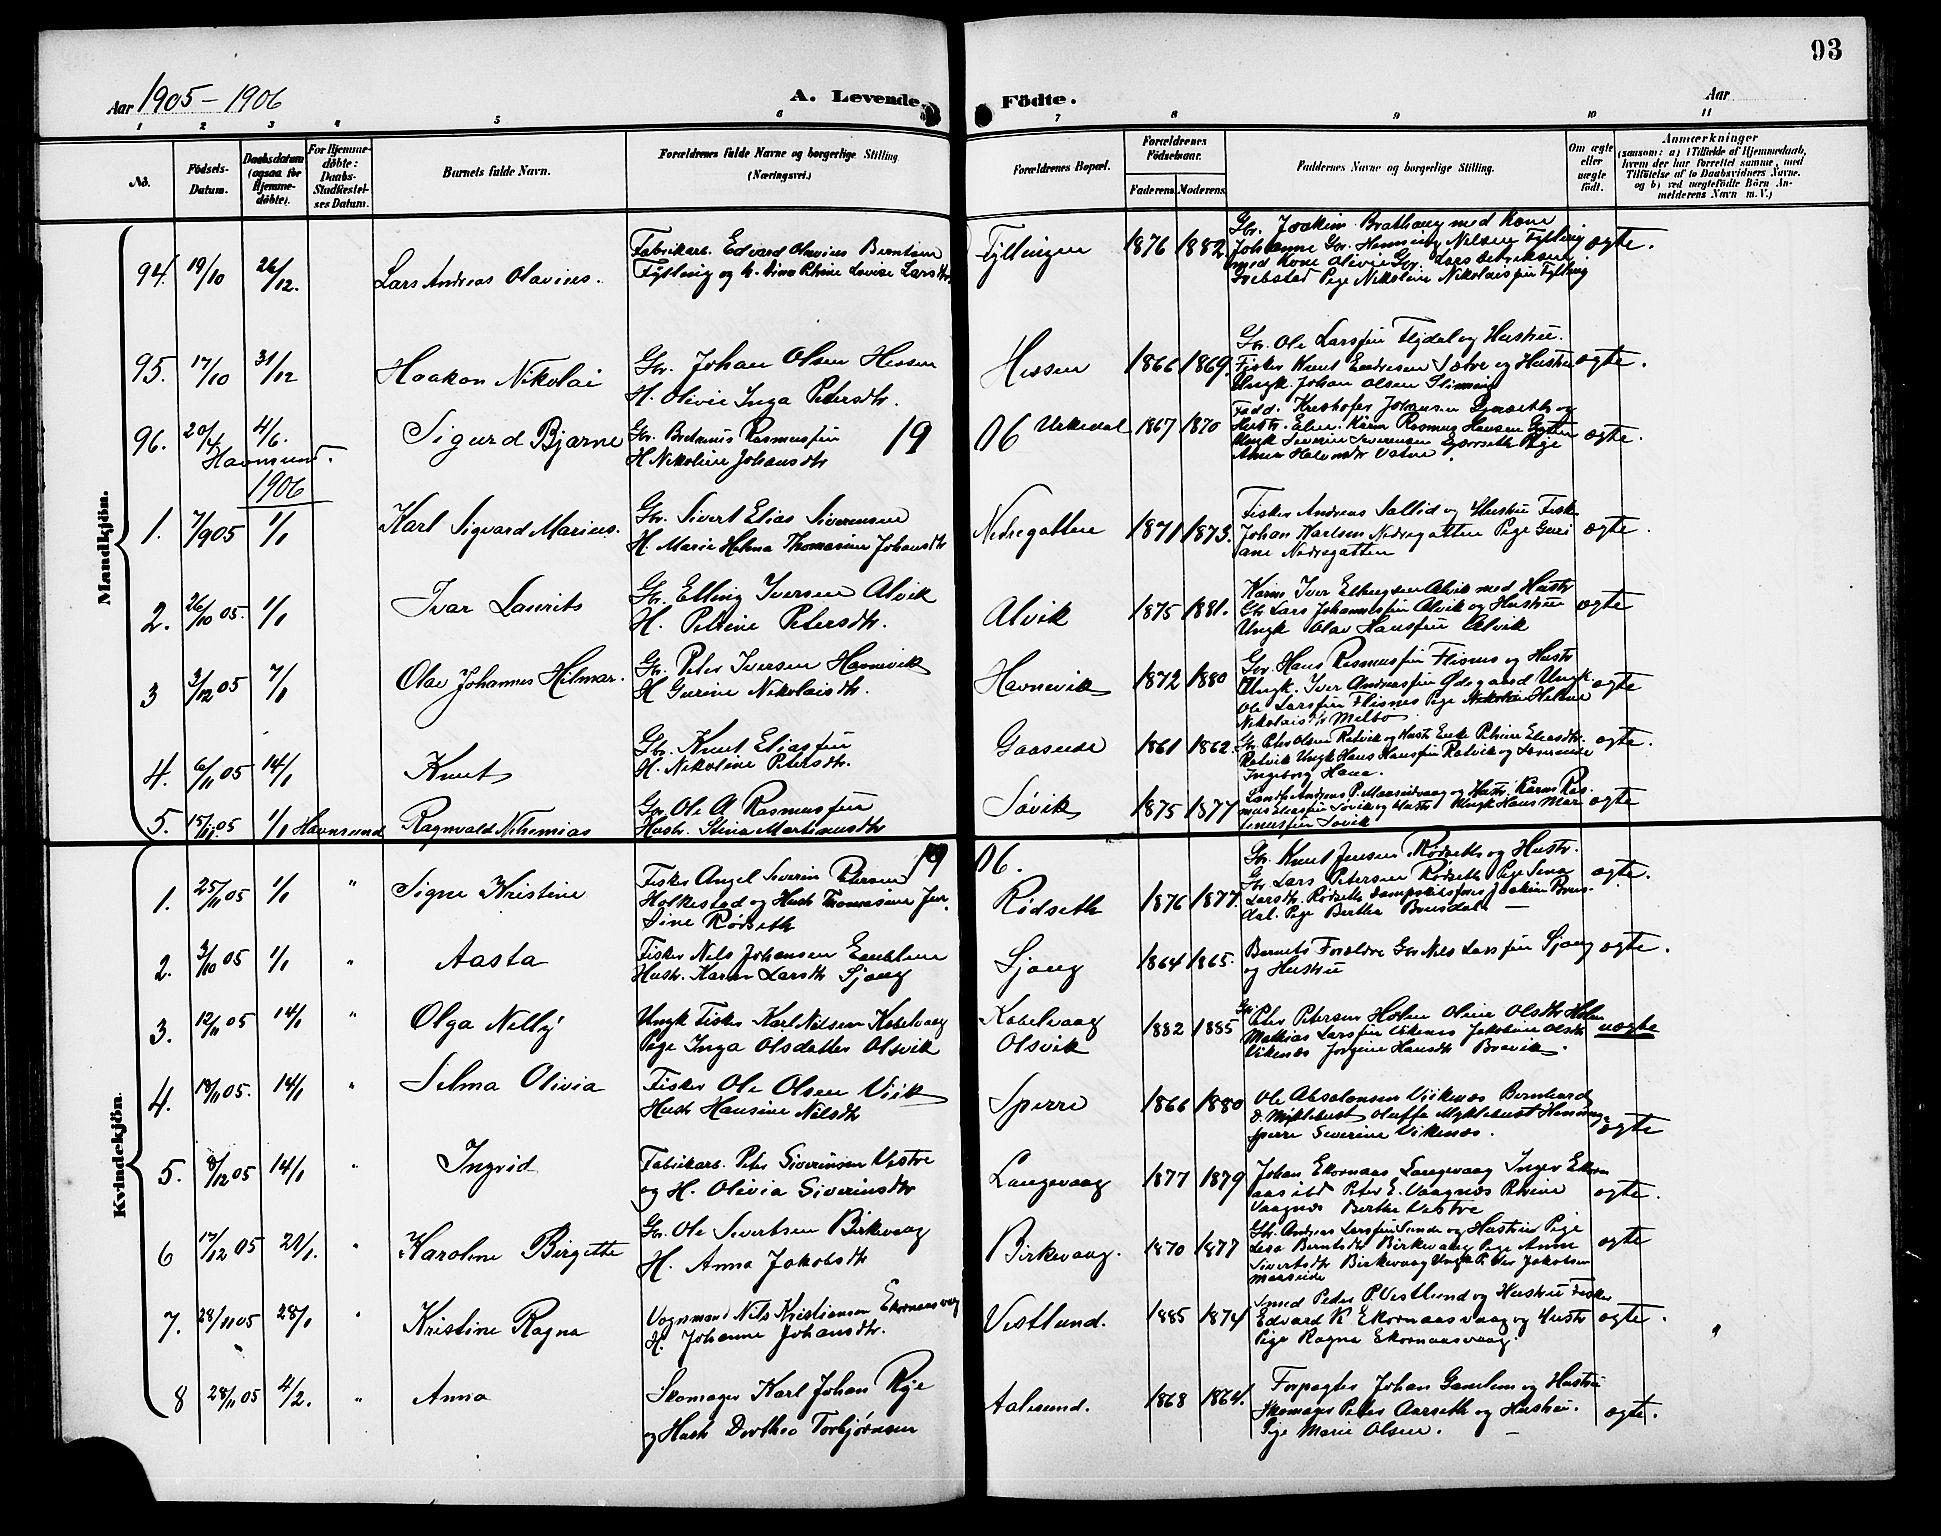 93
Aar 1905-1906
A. Levende Födte.
Aar
1 2 3 4 5 6 7 8 9 10 11
No.
Födsels-Datum.
Daabsdatum (ogsaa for Hjemmedøbte).
For Hjemmedøbte: Daabs-Stadfæstelses Datum.
Barnets fulde Navn.
Forældrenes fulde Navne og borgerlige Stilling (Næringsvei.)
Forældrenes Bopæl.
Forældrenes Födselsaar.
Faderens. Moderens.
Faddernes Navne og borgerlige Stilling.
Om ægte eller uægte født.
Anmærkninger
(saasom: a) i Tilfælde af Hjemmedaab, hvem der har forrettet samme, med Tilföielse af to Daabsvidners Navne, og b) ved uægtefödte Börn Anmelderens Navn m. V.)
Mandkjön.
94. 19/10 26/12. Lars Andreas Olavius.
Fabrikarb. Edvard Olavius Berntsen
Fylling og h. Sina Petrine Lovise Larsdtr
Fyllingen 1876 1882
Gbr. Joakim Brathaug med Kone
Johanne Gbr. Henning Nilsen Fylling
med Kone Olivie Gbr. Lars
Pige Nikoline Nikolaisfin Fylling
ægte.
95. 17/10 31/12 Haakon Nikolai
Gbr. Johan Olsen Hessen
H. Olivie Inga Petersdtr.
Hessen 1866 1869.
Gbr. Ole Larsfin Flydal og Hustru.
Fisker Knut Endresen Sætre og Hustru
Ungk. Johan Olsen Slinning
ægte.
96. 20/4 4/6. Sigurd Bjarne
Havnsund.
Gbr. Rasmusfin
H Nikoline Johansdtr
1906
Urkedal 1867 1870
Fadd. Kristofer Johansen og
Hustr. Karm Rasmus Hansen
Ungk Severin Severinsen Pige
Anna Vatne.
ægte.
1906
1. 7/9 05 1/1 Karl Sigvard Marius.
Gbr. Sivert Elias Siverinsen
H. Marie Helma Thomasine Johansdtr
Nedregotten 1871 1873.
Fisker Andreas Sallid og Hustru Fisk.
Johan Karlsen Nedregotten Pige Guri
ane Nedregotten
ægte
2. 26/10 05. 1/1 Ivar Laurits
Gbr. Elling Iversen Alvik
H. Petrine Petersdtr.
Alvik 1875 1881.
Karm Iver Ellingsen Alvik med Hustr
Gbr Lars Johannesfin Alvik og Hustru
Ungk Olav Hansfin Alvik
ægte
3 3/12 05 7/1 Olav Johannes Hilmar.
Gbr. Peter Iversen Havnevik
H Gurine Nikolaisdtr.
Havnevik 1872 1880
Gbr. Hans Rasmusfin Flisnes og Hustr
Ungk. Iver Andreasfin Ødegaard Ungk
Ole Larsfin Flisnes Pige Helene
Nikolaisdtr Melbo.
ægte
4. 6/11 05 14/1 Knut
Gbr. Knut Eliasfin
H. Nikoline Petersdtr.
Gaaseide 1861 1862.
Gbr. Peter Olsen Ratvik og Hustr. Enke Petrine Eliasdtr.
Ratvik Ungk Hans Hansfin Ratvik og
Ingeborg Hana.
ægte.
5. 15/11 05 1/1 Havnsund Ragnvald Nehemias
Gbr. Ole A Rasmusfin
Hustr. Stina Martinusdtr
Søvik 1875 1877
Andreas P. Maaseidvaag og Hustr. Karm Ras-
mus Eliasfin Søvik og Hustr Ungk Hans Mar
tinusfin Søvik
ægte
Kvindekjön.
1906.
1. 25/11 05 1/1 " Signe Kristine
Fisker Angel Severin Petersen
Holkestad og Hustr Thomasine Jen-
sine Rødseth
Rødseth 1876 1877.
Gbr. Knut Jensen Rødseth og Hustr.
Gbr Lars Petersen Rødseth Pige Sina
Larsdtr. Rødseth Joakim Brus-
dal. Pige Bertha Brusdal. —
ægte.
2. 3/10 05 1/1 " Aasta
Fisker Nils Johansen Emblem
Hustr. Karen Larsdtr Sjong
Sjong 1864 1865.
Barnets Forældre Gbr Nils Larsfin Sjong
og Hustru
ægte.
3. 12/11 05 14/1 " Olga Nelly
Ungk Fisker Karl Nilsen Kabelvaag
Pige Inga Olsdatter Olsvik
Kabelvaag
Olsvik 1882 1885
Gbr Peter Petersen Holen Oline Olsdtr Holen
Mathias Larsfin Vikenes Jakobine Olsdtr
Vikenæs Jorgine Hansdtr Brevik.
uægte
4. 18/11 05. 14/1 " Selma Olivia
Fisker Ole Olsen Viik
Hustr Hansine Nilsdtr
Sperre 1866 1880
Ole Absalonsen Vikenæs Bernhard
D. Myklebust Oluffa Myklebust Henning
Sperre Severine Vikenæs.
ægte
5. 8/12 05 14/1 " Ingrid
Fabrikarb. Peter Siverinsen Vestre
og H. Olivia Siverinsdtr
Langevaag 1877 1879
Johan Ekornaas Langevaag Inger Ekorn
aas ibd Peter E. Vaagnæs Petrine
Vaagnæs Berthe Vestre
ægte.
6 17/12 05 21/1. " Karoline Birgitte
Gbr. Ole Sivertsen Birkevaag
H. Anna Jakobsdtr
Birkevaag. 1870 1877
Gbr. Andreas Larsfin Sunde og Hustru Pige
Lesa Berntsdtr Birkevaag Pige Anne
Sivertsdtr Birkevaag Ungk Peter Jakobsen
Maaseide
ægte
7. 28/11 05 28/1 " Kristine Ragna
Vognmand Nils Kristiansen Ekornaasvaag
H. Johanne Johansdtr.
Vestlund. 1885 1874
Smed Peder P. Vestlund og Hustru Fisker
Edvard K Ekornaasvaag og Hustr
Pige Ragna Ekornaasvaag.
ægte.
8 28/11 05 4/2. " Anna
Skomager Karl Johan Rye
og Hustr Dorthea Torbjørnsen
Aalesund. 1868 1864.
Forpagter Johan Gamlem og Hustru
Skomager Peter Aarseth og Hustru.
Pige Marie Olsen. —
ægte.